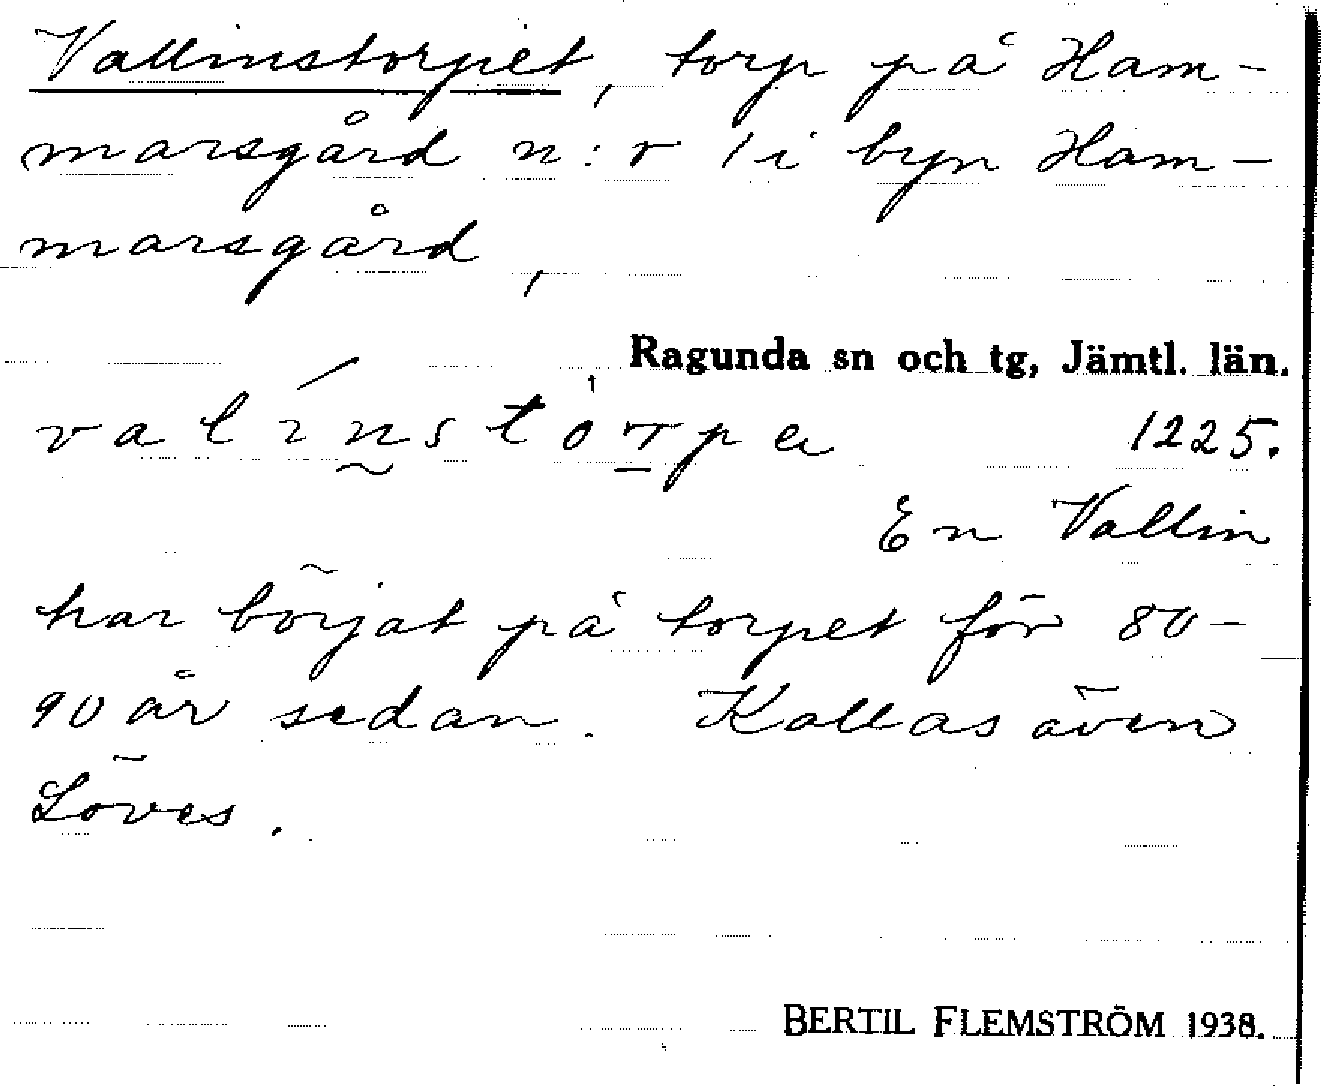 Vallinstorpet, torp på Ham-
marsgård n:r 1 i byn Ham-
marsgård,
Ragunda sn och tg, Jämtl. län.
valinstorpa 1225.
En Vallin
har börjat på torpet för 80-
90 år sedan. Kallas även
Löves.
BERTIL FLEMSTRÖM 1938.